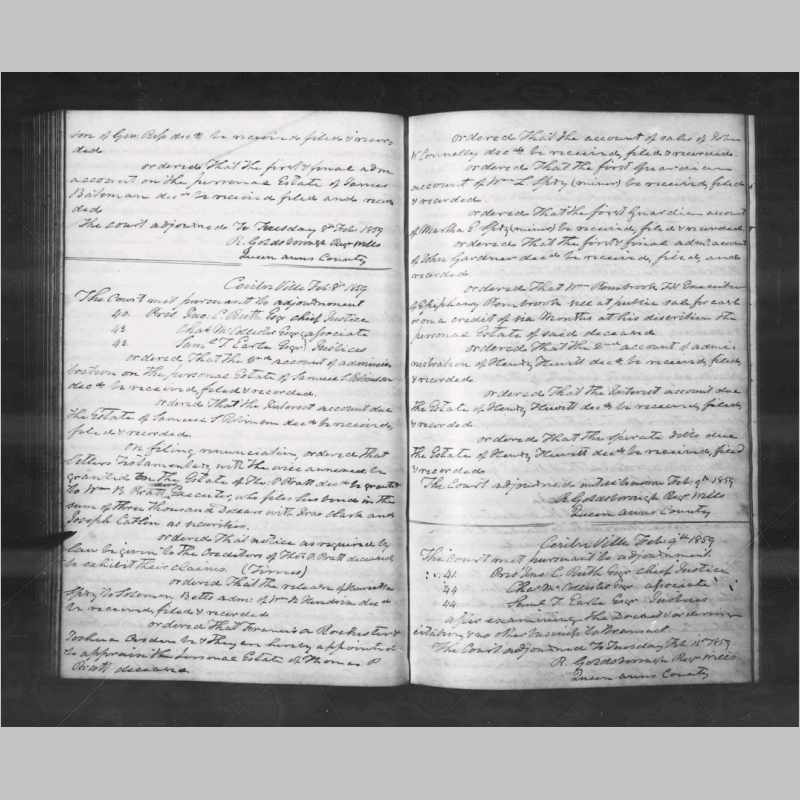 son of Geo. Ress decd be received filed & recor
ded
ordered that the first & final adm
account on the personal Estate of James
Bateman decd be received filed and recor
ded
The Court adjourned To Tuesday 8th Feb 1859
R. Goldsborough Regr Wills
Queen anns County
Centre Ville Feb 8th 1859
The Court met pursuant to adjournment
40. Prest Jno. C. Ruth Esq chief Justice
43. Chas McCollister Esqr associate
42. Saml T Earle Esqr Justices
ordered that the 2nd account of adminis
tration on the personal Estate of Samuel S Robinson
decd be received, filed & recorded.
ordered that the Interest account due
the Estate of Samuel S Robinson decd be received
filed & recorded
On filing renunciation, ordered that
Letters Testamentary with the will annexed be
granted on the Estate of Thos P Pratt decd be granted
to Wm B Pratt Executor, who files his bond in the
sum of three thousand Dollars with Isaac Clark and
Joseph Catlin as securities.
ordered that notice as required by
Law be given to the Creditors of Thos P Pratt deceased
to exhibit their claims. (Times)
ordered that the release of
Spry to Solomon Betts admr of Wm B Hendrix decd
be received, filed & recorded
ordered that Francis A Rochester &
Joshua Carden be & they are hereby appointed
to appraise the personal Estate of Thomas P
Pratt deceased
ordered that the account of sales of John
W Connelley decd be received, filed & recorded
ordered that the first Guardian
account of Wm L Spry (minor) be received, filed
& recorded
ordered that the first Guardian account
of Martha E Spry (minor) be received, filed & recorded
ordered that the first & final admn account
of John Gardner decd be received, filed, and
recorded
ordered that Wm Rombrook Executor
of Ephiphany Rombrook sell at public sale for cash
or on a credit of six Months at his discretion the
personal Estate of said deceased
ordered that the 2nd account of admi
nistration of Henry Hewitt decd be received, filed,
& recorded
ordered that the Interest account due
the Estate of Henry Hewitt decd be received, filed,
& recorded
ordered that the sperate debts due
the Estate of Henry Hewitt decd be received, filed
& recorded
The Court adjourned untill tomorrow Feb 9th 1859
R. Goldsborough Regr Wills
Queen anns County
Centre Ville Feb 9th 1859
The Court met pursuant to adjournment.
41. Prest Jno. C. Ruth Esqr chief Justice
44 Chas McCollister Esqr associate
44 Saml T. Earle Esqr Justices
after examining the Docket & ordering
citations, & no other business to transact
The Court adjourned To Tuesday Feb 15th 1859
R. Goldsborough Regr Wills
Queen anns County